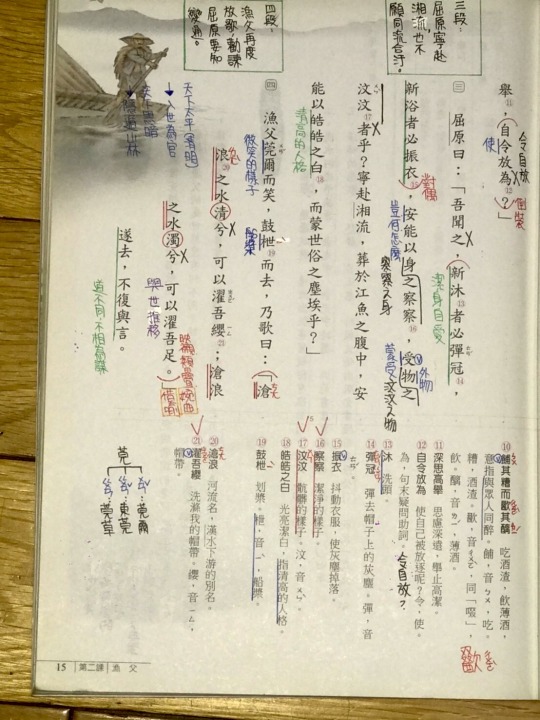 三段：
屈原寧赴
湘流，也不
願同流合汙。
四段：
漁父再度
放歌，勸諫
屈原要知
變通。
舉，自令放為⑫？」
令自放
使
倒裝
三 屈原曰：「吾聞之，新沐⑬者必彈冠⑭，
潔身自愛
新浴者必振衣⑮，安能以身之察察⑯，受物之
對偶
豈、何、怎麼
察察之身
蒙受
外物
汶汶之物
汶汶⑰者乎？寧赴湘流，葬於江魚之腹中，安
能以皓皓之白⑱，而蒙世俗之塵埃乎？」
清高的人格
四 漁父莞爾而笑，鼓枻⑲而去，乃歌曰：「滄
微笑的樣子
浪⑳之水清兮，可以濯吾纓㉑；滄浪
天下太平（清明）
入世為官
之水濁兮，可以濯吾足。」
與世推移
借喻
遂去，不復與言。
道不同，不相為謀
莞
莞爾
東莞
莞草
⑩餔其糟而歠其醨 吃酒渣，飲薄酒，
意指與眾人同醉。餔，音ㄅㄨ，吃。
糟，酒渣。歠，音ㄔㄨㄛˋ，同「啜」，
飲。醨，音ㄌㄧˊ，薄酒。
⑪深思高舉 思慮深遠，舉止高潔。
⑫自令放為 使自己被放逐呢？令，使。
為，句末疑問助詞。
令自放？
⑬沐 洗頭。
⑭彈冠 彈去帽子上的灰塵。彈，音
ㄊㄢˊ。
⑮振衣 抖動衣服，使灰塵掉落。
⑯察察 潔淨的樣子。
⑰汶汶 骯髒的樣子。汶，音ㄨㄣˋ。
⑱皓皓之白 光亮潔白，指清高的人格。
⑲鼓枻 划槳。枻，音ㄧˋ，船槳。
⑳滄浪 河流名，漢水下游的別名。
㉑濯吾纓 洗滌我的帽帶。纓，音ㄧㄥ，
帽帶。
15 第二課 漁父